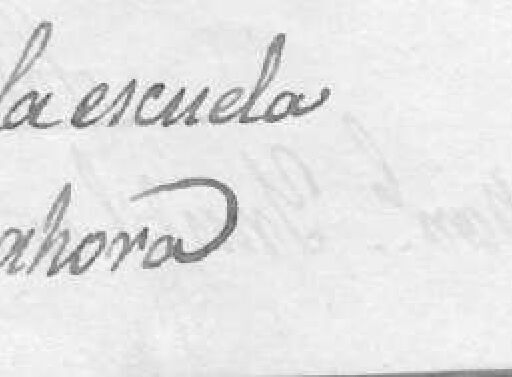 la escuela
ahora